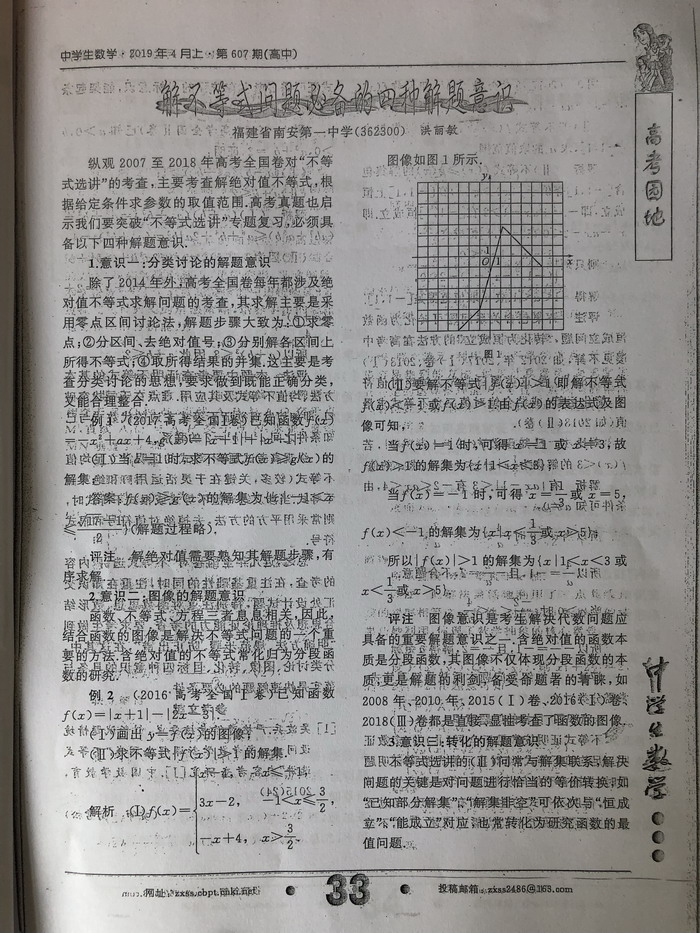 中学生数学·2019年4月上·第607期(高中)
解不等式问题必备的四种解题意识
福建省南安第一中学(362300) 洪丽敏
纵观2007至2018年高考全国卷对“不等
式选讲”的考查,主要考查解绝对值不等式,根
据给定条件求参数的取值范围.高考真题也启
示我们要突破“不等式选讲”专题复习,必须具
备以下四种解题意识.
1.意识一:分类讨论的解题意识
除了2014年外,高考全国卷每年都涉及绝
对值不等式求解问题的考查,其求解主要是采
用零点区间讨论法,解题步骤大致为:①求零
点;②分区间、去绝对值号;③分别解各区间上
所得不等式;④取所得结果的并集.这主要是考
查分类讨论的思想,要求做到既能正确分类,
又能合理整合.
例1 (2017·高考全国Ⅰ卷)已知函数f(x)
=-x²+ax+4,g(x)=|x+1|+|x-1|.
(Ⅰ)当a=1时,求不等式f(x)≥g(x)的
解集.
(解题过程略).
评注 解绝对值需要熟知其解题步骤,有
序求解.
2.意识二:图像的解题意识
函数、不等式、方程三者息息相关,因此,
结合函数的图像是解决不等式问题的一个重
要的方法.含绝对值的不等式常化归为分段函
数的研究.
例2 (2016·高考全国Ⅰ卷)已知函数
f(x)=|x+1|-|2x-3|.
(Ⅰ)画出y=f(x)的图像;
(Ⅱ)求不等式|f(x)|>1的解集.
解析 (Ⅰ)f(x)=
3x-2, -1<x≤3/2,
-x+4, x>3/2.
图像如图1所示.
y
1
O 1
x
图1
(Ⅱ)要解不等式|f(x)|>1,即解不等式
f(x)>1或f(x)<-1,由f(x)的表达式及图
像可知,
当f(x)=1时,可得x=1或x=3,故
f(x)>1的解集为{x|1<x<3};
当f(x)=-1时,可得x=1/3或x=5,
f(x)<-1的解集为{x|x<1/3或x>5}.
所以|f(x)|>1的解集为{x|1<x<3或
x<1/3或x>5}.
评注 图像意识是考生解决代数问题应
具备的重要解题意识之一,含绝对值的函数本
质是分段函数,其图像不仅体现分段函数的本
质,更是解题的利剑,备受命题者的青睐,如
2008年、2010年、2015(Ⅰ)卷、2016(Ⅰ)卷、
2018(Ⅲ)卷都是直接、显性考查了函数的图像.
3.意识三:转化的解题意识
不等式选讲的(Ⅱ)问常与解集联系,解决
问题的关键是对问题进行恰当的等价转换,如
“已知部分解集”“解集非空”可依次与“恒成
立”“能成立”对应,也常转化为研究函数的最
值问题.
高考园地
中学生数学
网址:zxss.cbpt.cnki.net
33
投稿邮箱:zxss2486@163.com